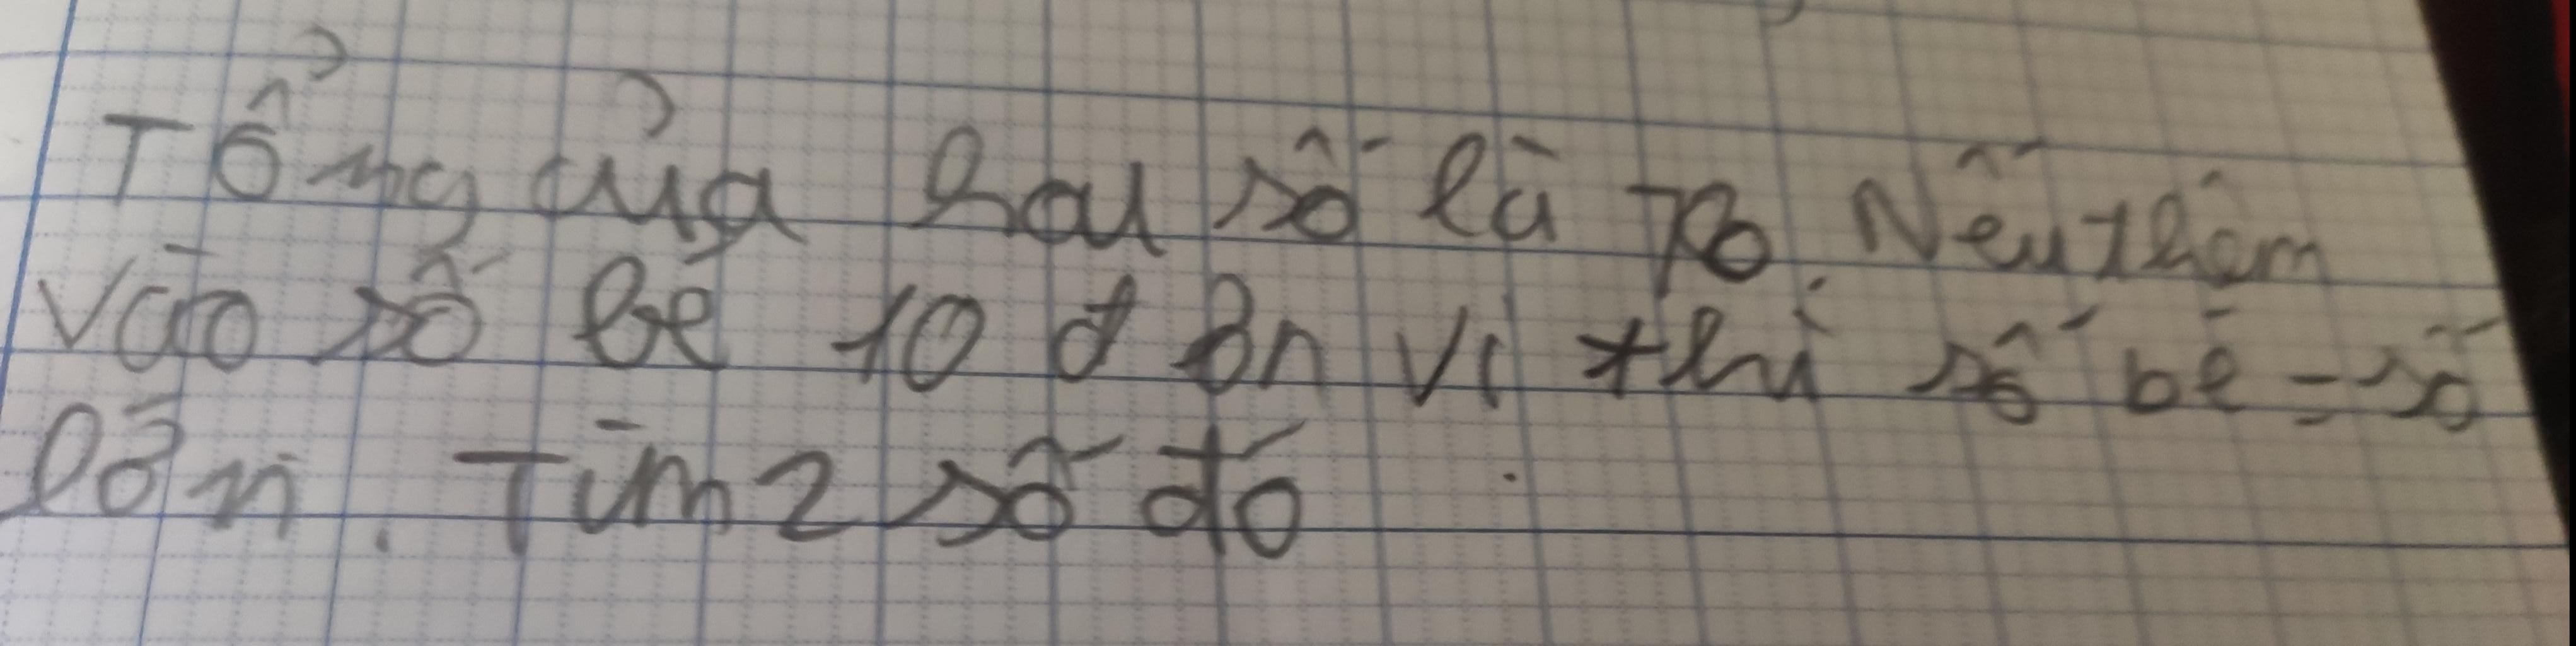 Tổng của hai số là 70. Nếu thêm
vào số bé 10 đơn vị thì số bé = số
lớn. Tìm 2 số đó